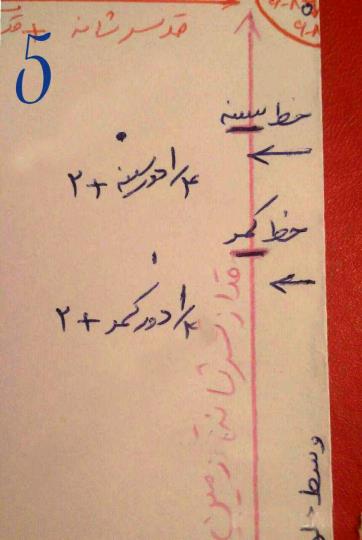 قد سرشانه + قد
5
خط سینه
۱/۴ دور سینه + ۲
خط کمر
۱/۴ دور کمر + ۲
قد از سرشانه تا زمین
وسط